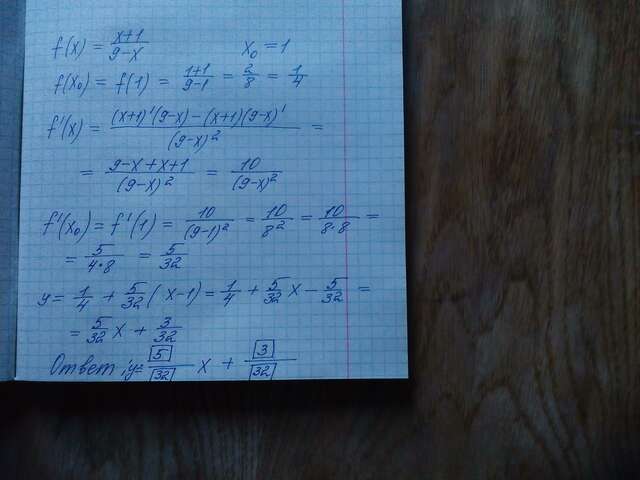 f(x) = x+1/9-x x₀ = 1
f(x₀) = f(1) = 1+1/9-1 = 2/8 = 1/4
f'(x) = (x+1)'(9-x)-(x+1)(9-x)'/(9-x)² =
= 9-x+x+1/(9-x)² = 10/(9-x)²
f'(x₀) = f'(1) = 10/(9-1)² = 10/8² = 10/8·8 =
= 5/4·8 = 5/32
y = 1/4 + 5/32 (x-1) = 1/4 + 5/32 x - 5/32 =
= 5/32 x + 3/32
Ответ: y = 5/32 x + 3/32